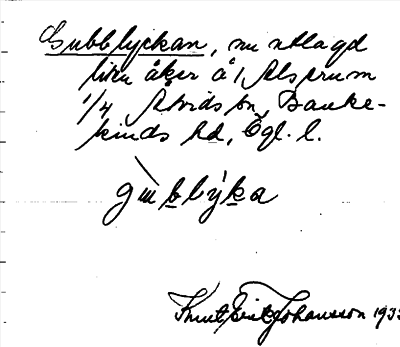 Gubblyckan, nu utlagd
liten åker å 1 Alsprum
1/4 Åtvids sn, Banke-
kinds hd, Ögl. l.
gubblyka
Knut Eric Johansson 193